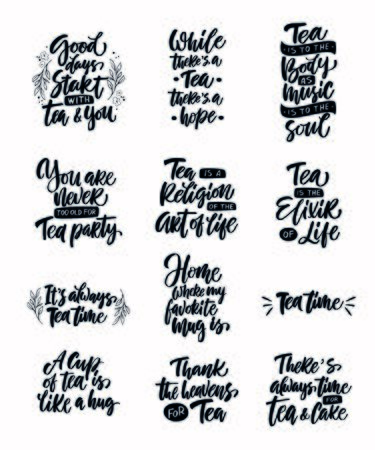 Good
days
Start
WITH
tea & you
While
there's a
· Tea ·
there's a
· hope ·
Tea
IS TO THE
Body
AS
music
IS TO THE
soul
You are
never
TOO OLD FOR
Tea party
Tea IS A
Religion
OF THE
Art of life
Tea
IS THE
Elixir
OF Life
It's always
Tea time
Home
where my
favorite
mug is
Tea time
A Cup
of tea is
like a hug
Thank
the heavens
FOR Tea
There's
always time
FOR
tea & Cake